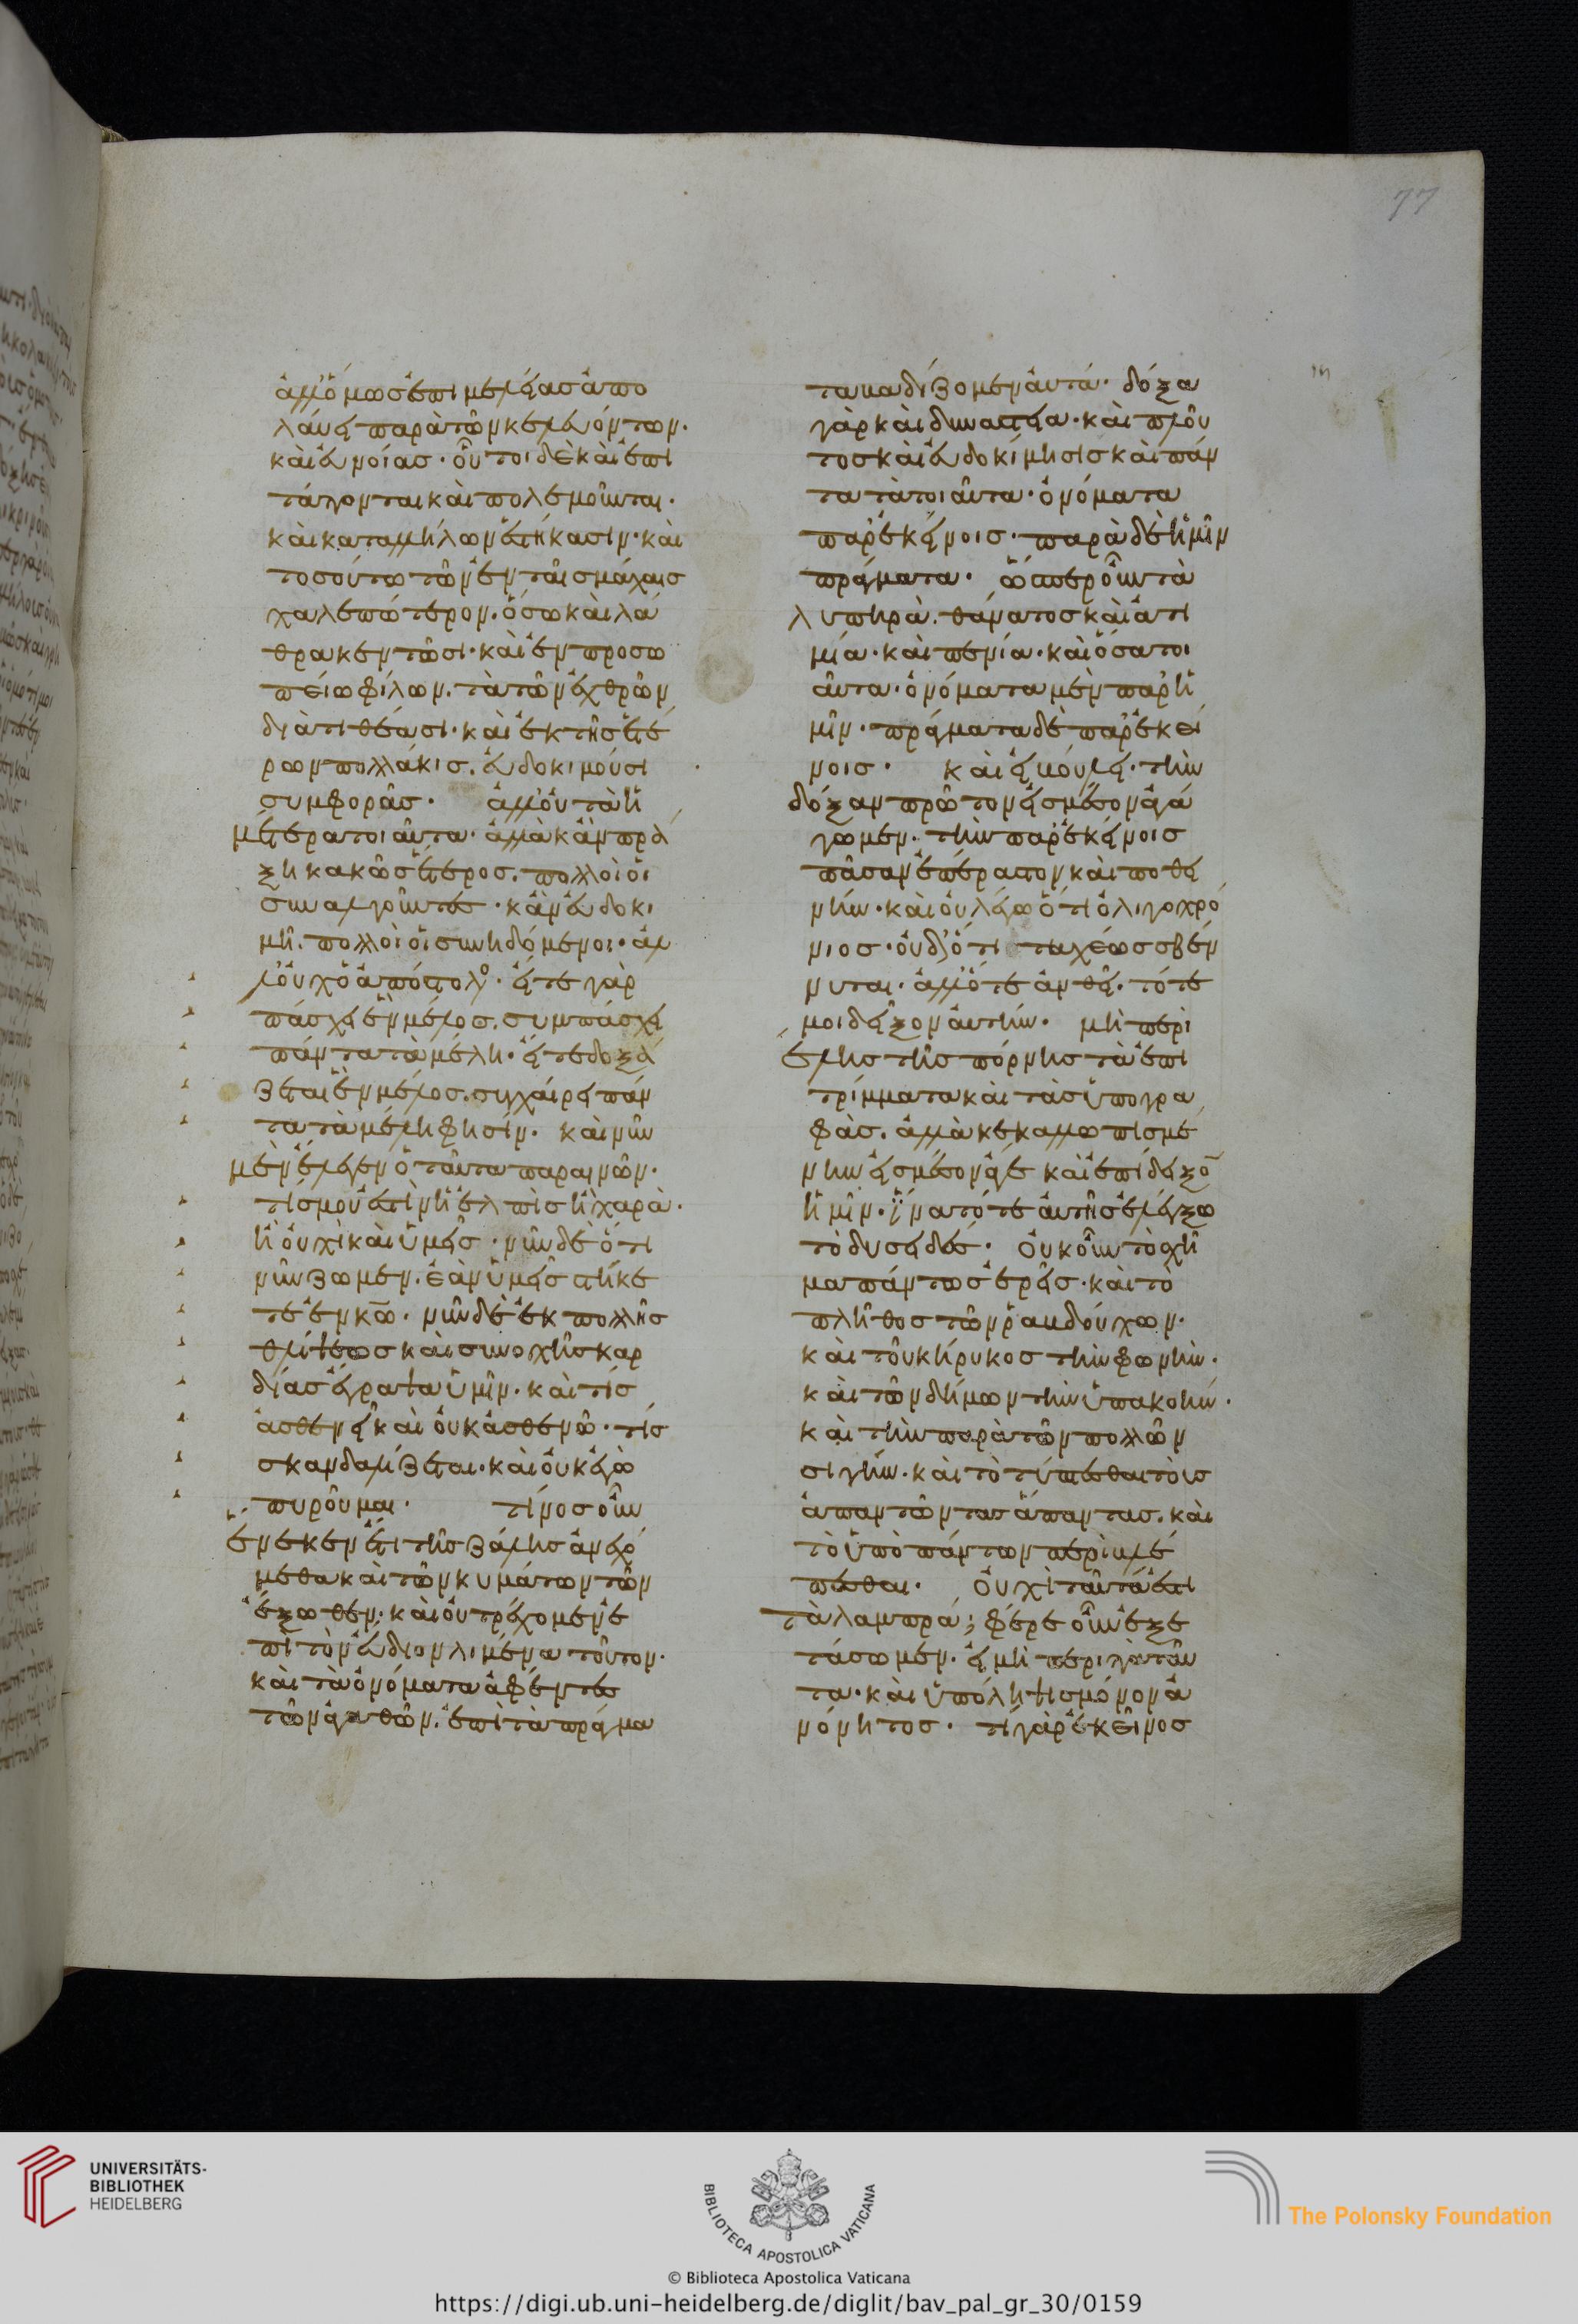 ἀλλ' ὅμως ἐπιμελείας ἀπο
λαύει παρὰ τῶν κελευόντων·
καὶ εὐνοίας· οὗτοι δὲ καὶ ἐπι
τάττονται καὶ πολεμοῦνται·
καὶ κατ' ἀλλήλων ἑστήκασιν· καὶ
τοσούτω τῶν ἐν ταῖς μάχαις
χαλεπώτερον· ὅσω καὶ λά
θρα κεντῶσι· καὶ ἐν προσω
πείω φίλων· τὰ τῶν ἐχθρῶν
διατιθέασι· καὶ ἐκ τῆς ἑτέ
ρων πολλάκις· εὐδοκιμοῦσι
συμφορᾶς· ἀλλ' οὐ τὰ ἡ
μέτερα τοιαῦτα· ἀλλὰ κἂν πρά
ξη κακῶς ἕτερος· πολλοὶ οἱ
συναλγοῦντες· κἂν εὐδοκι
μῆ· πολλοὶ οἱ συνηδόμενοι· ἀλ
λ' οὐχ ὁ ἀπόστολο· εἴτε γὰρ
πάσχει ἓν μέλος· συμπάσχει
πάντα τὰ μέλη· εἴτε δοξά
ζεται ἓν μέλος· συγχαίρει πάν
τα τὰ μέλη φησίν· καὶ νῦν
μὲν ἔλεγεν ὁ ταῦτα παραινῶν·
τίς μου ἐστὶν ἡ ἐλπὶς ἢ χαρὰ·
ἢ οὐχὶ καὶ ὑμεῖς· νῦν δὲ ὅτι
νῦν ζῶμεν· ἐὰν ὑμεῖς στήκε
τε ἐν κω· νῦν δὲ ἐκ πολλῆς
θλίψεως καὶ συνοχῆς καρ
δίας ἔγραψα ὑμῖν· καὶ τίς
ἀσθενεῖ καὶ οὐκ ἀσθενῶ· τίς
σκανδαλίζεται· καὶ οὐκ ἐγὼ
πυροῦμαι· τίνος οὖν
ἕνεκεν ἔτι τῆς ζάλης ἀνεχό
μεθα καὶ τῶν κυμάτων τῶν
ἔξωθεν· καὶ οὐ τρέχομεν ἐ
πὶ τὸν εὔδιον λιμένα τοῦτον·
καὶ τὰ ὀνόματα ἀφέντες
τῶν ἀγαθῶν· ἐπὶ τὰ πράγμα
τα βαδίζομεν αὐτά· δόξα
γὰρ καὶ δυναστεία· καὶ πλοῦ
τος καὶ εὐδοκίμησις καὶ πάν
τα τὰ τοιαῦτα· ὀνόματα
παρ' ἐκείνοις· παρὰ δὲ ἡμῖν
πράγματα· ὥσπερ οὖν τὰ
λυπηρὰ· θάνατος καὶ ἀτι
μία· καὶ πενία· καὶ ὅσα τοι
αῦτα· ὀνόματα μὲν παρ' ἡ
μῖν· πράγματα δὲ παρ' ἐκεί
νοις· καὶ εἰ βούλει· τὴν
δόξαν πρῶτον εἰς μέσον ἀγά
γωμεν· τὴν παρ' ἐκείνοις
πᾶσαν ἐπέραστον καὶ ποθει
νήν· καὶ οὐ λέγω ὅτι ὀλιγοχρό
νιος· οὐδ' ὅτι ταχέως σβέν
νυται· ἀλλ' ὅτε ἀνθεῖ· τότε
μοι δεῖξον αὐτήν· μὴ περι
έλης τῆς πόρνης τὰ ἐπι
τρίμματα καὶ τὰς ὑπογρα
φάς· ἀλλὰ κεκαλλωπισμέ
νην εἰς μέσον ἄγε καὶ ἐπίδειξο
ἡμῖν· ἵνα τότε αὐτῆς ἐλέγξω
τὸ δυσειδές· οὐκοῦν τὸ σχῆ
μα πάντως ἐρεῖς· καὶ τὸ
πλῆθος τῶν ῥαβδούχων·
καὶ τοῦ κήρυκος τὴν φωνήν·
καὶ τῶν δήμων τὴν ὑπακοήν·
καὶ τὴν παρὰ τῶν πολλῶν
σιγήν· καὶ τὸ τύπτεσθαι τοὺς
ἀπαντῶντας ἅπαντας· καὶ
τὸ ὑπὸ πάντων περιβλέ
πεσθαι· οὐχὶ ταῦτά ἐστι
τὰ λαμπρά; φέρε οὖν ἐξε
τάσωμεν· εἰ μὴ περιττὰ ταῦ
τα· καὶ ὑπόληψις μόνον ἀ
νόνητος· τί γὰρ ἐκεῖνος
77
UNIVERSITÄTS-
BIBLIOTHEK
HEIDELBERG
BIBLIOTECA APOSTOLICA VATICANA
The Polonsky Foundation
© Biblioteca Apostolica Vaticana
https://digi.ub.uni-heidelberg.de/diglit/bav_pal_gr_30/0159